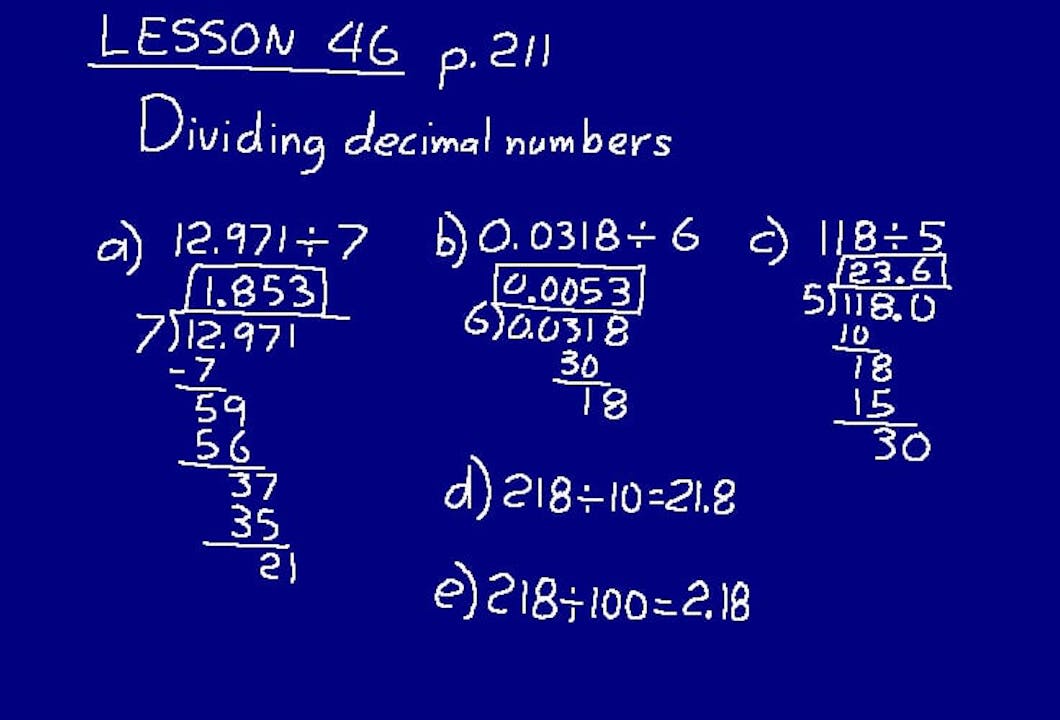 LESSON 46 p. 211
Dividing decimal numbers
a) 12.971÷7
1.853
7)12.971
-7
59
56
37
35
21
b) 0.0318÷6
0.0053
6)0.0318
30
18
c) 118÷5
23.6
5)118.0
10
18
15
30
d) 218÷10=21.8
e) 218÷100=2.18